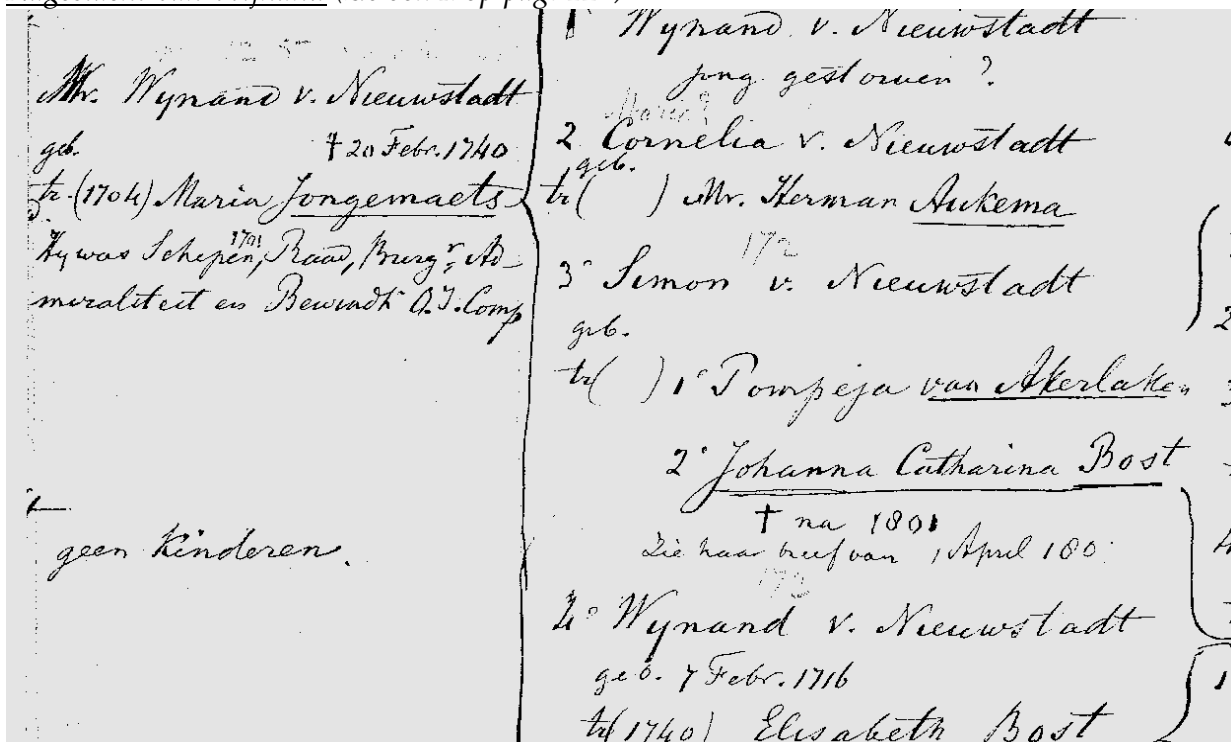 Mr. Wynand v. Nieuwstadt
geb. † 20 Febr. 1740
tr. (1704) Maria Jongemaets
Hy was Schepen, 1701 Raad, Burgr, Ad-
miraliteit en Bewindhr O.I. Comp
geen Kinderen.
1° Wynand v. Nieuwstadt
jong gestorven?
Maria?
2 Cornelia v. Nieuwstadt
geb.
tr ( ) Mr. Herman Aukema
172
3° Simon v. Nieuwstadt
geb.
tr ( ) 1° Pompeja van Akerlaken
2° Johanna Catharina Bost
† na 1801
Zie haar brief van 1 April 180
4° Wynand v. Nieuwstadt
geb. 7 Febr. 1716
tr (1740) Elisabeth Bost